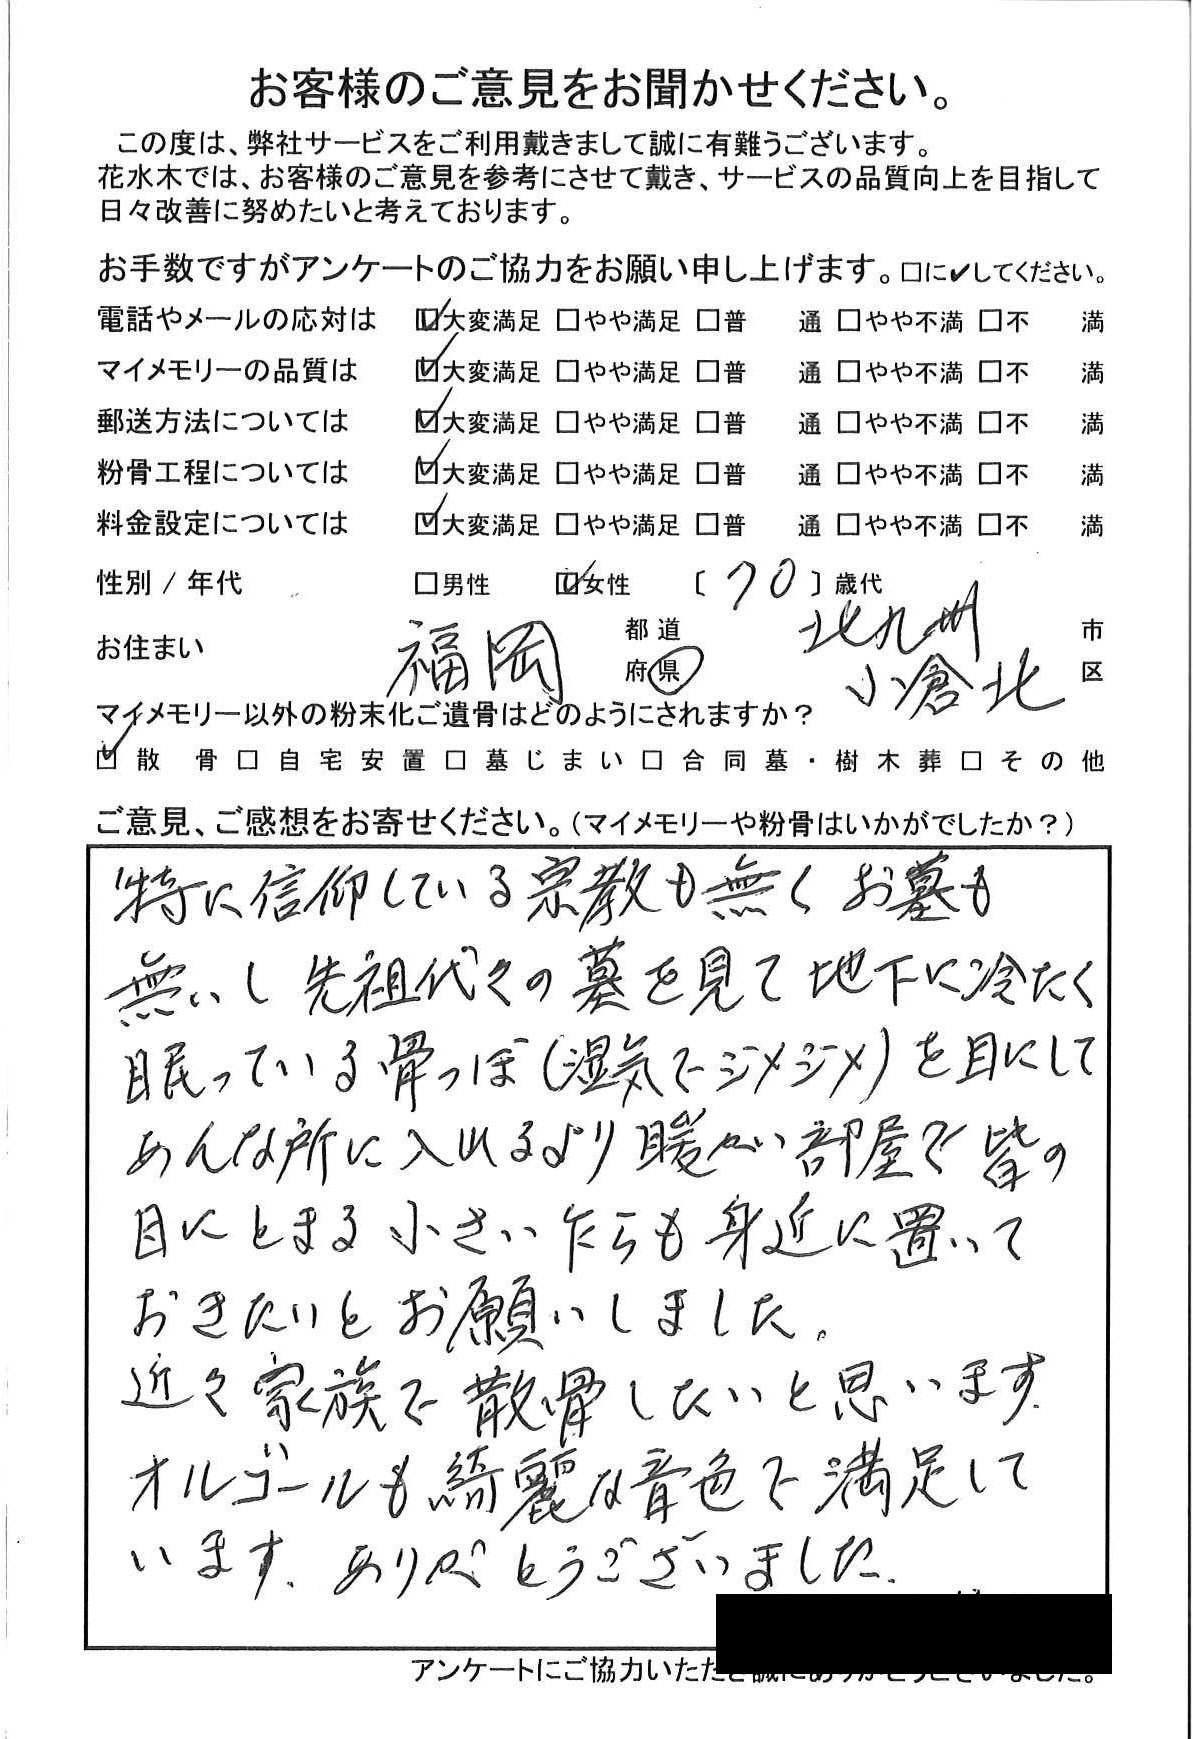 お客様のご意見をお聞かせください。
この度は、弊社サービスをご利用戴きまして誠に有難うございます。
花水木では、お客様のご意見を参考にさせて戴き、サービスの品質向上を目指して
日々改善に努めたいと考えております。
お手数ですがアンケートのご協力をお願い申し上げます。□に✔してください。
電話やメールの応対は ☑大変満足 □やや満足 □普 通 □やや不満 □不 満
マイメモリーの品質は ☑大変満足 □やや満足 □普 通 □やや不満 □不 満
郵送方法については ☑大変満足 □やや満足 □普 通 □やや不満 □不 満
粉骨工程については ☑大変満足 □やや満足 □普 通 □やや不満 □不 満
料金設定については ☑大変満足 □やや満足 □普 通 □やや不満 □不 満
性別 / 年代 □男性 ☑女性 〔 70 〕歳代
お住まい 福岡 都道府県 北九州 市 小倉北 区
マイメモリー以外の粉末化ご遺骨はどのようにされますか？
☑散 骨 □自宅安置 □墓じまい □合同墓・樹木葬 □その他
ご意見、ご感想をお寄せください。（マイメモリーや粉骨はいかがでしたか？）
特に信仰している宗教も無くお墓も
無いし先祖代々の墓を見て地下に冷たく
眠っている骨つぼ(湿気でジメジメ)を目にして
あんな所に入れるより暖かい部屋で皆の
目にとまる小さいながらも身近に置いて
おきたいとお願いしました。
近々家族で散骨したいと思います.
オルゴールも綺麗な音色で満足して
います. ありがとうございました.
アンケートにご協力いただき誠にありがとうございました。